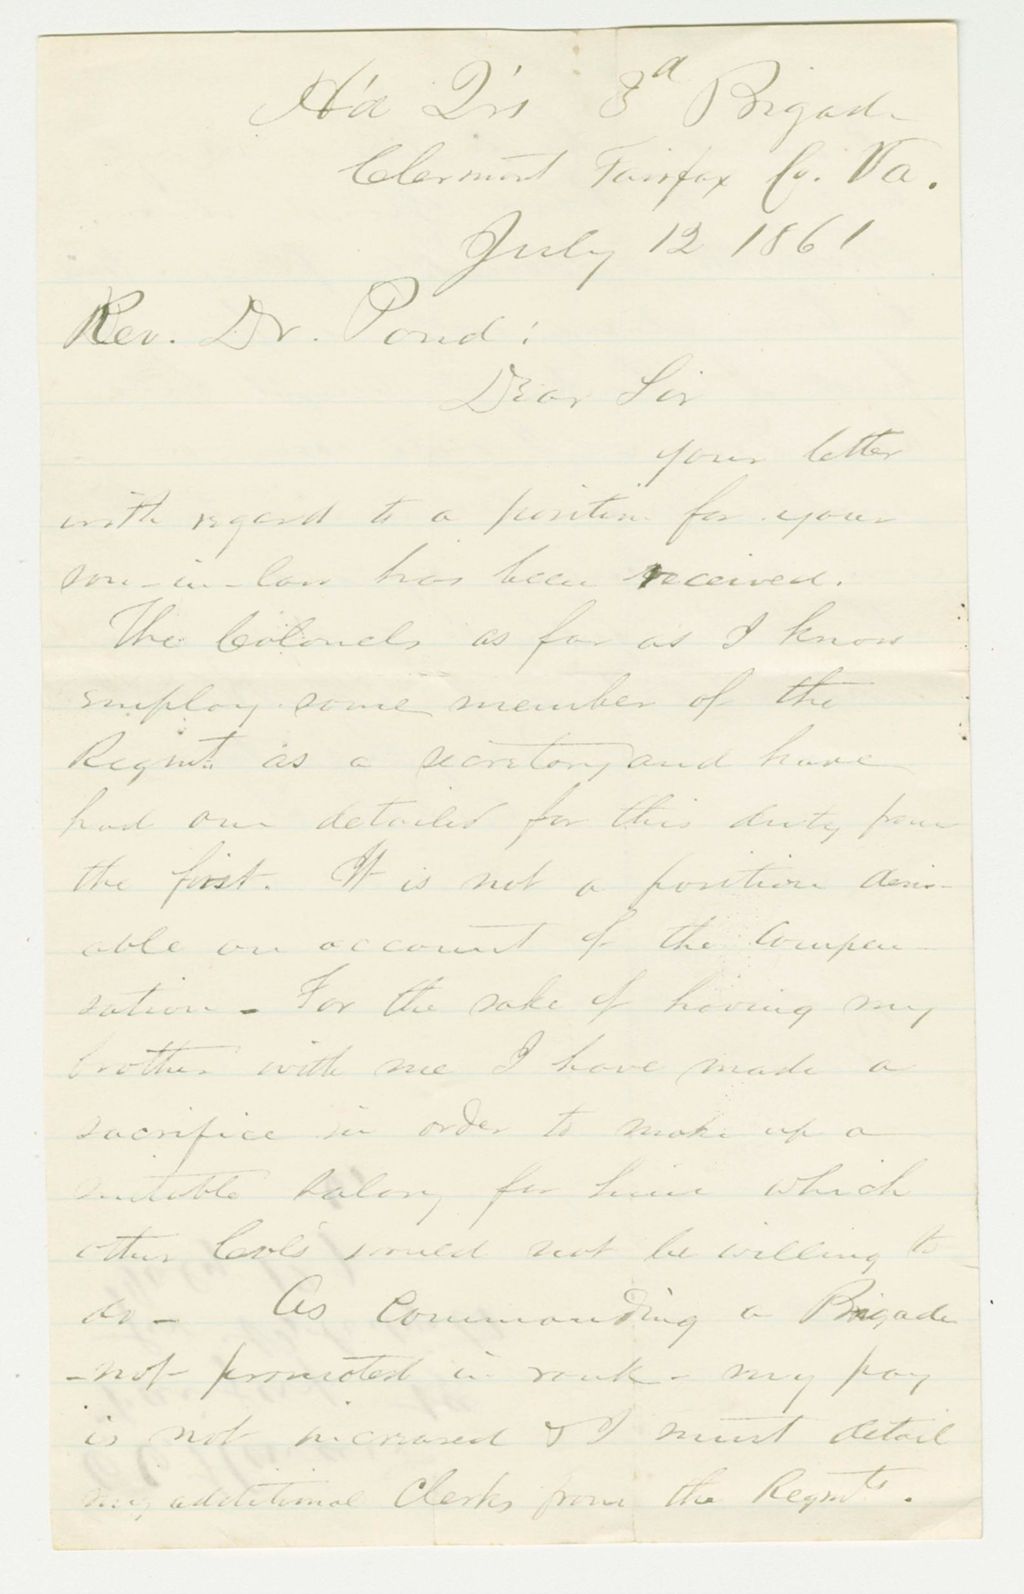 Hd Qrs 3d Brigade
Clermont Fairfax Co. Va.
July 12 1861
Rev. Dr. Pond:
Dear Sir
your letter
with regard to a position for your
son-in-law has been received.
The Colonels as far as I know
employ some member of the
Regmt. as a secretary and have
had one detailed for this duty from
the first. It is not a position desir-
able on account of the Compen
sation - For the sake of having my
brother with me I have made a
sacrifice in order to make up a
suitable salary for him which
other Cols would not be willing to
do - As Commanding a Brigade
- not promoted in rank - my pay
is not increased & I must detail
my additional Clerks from the Regmts.